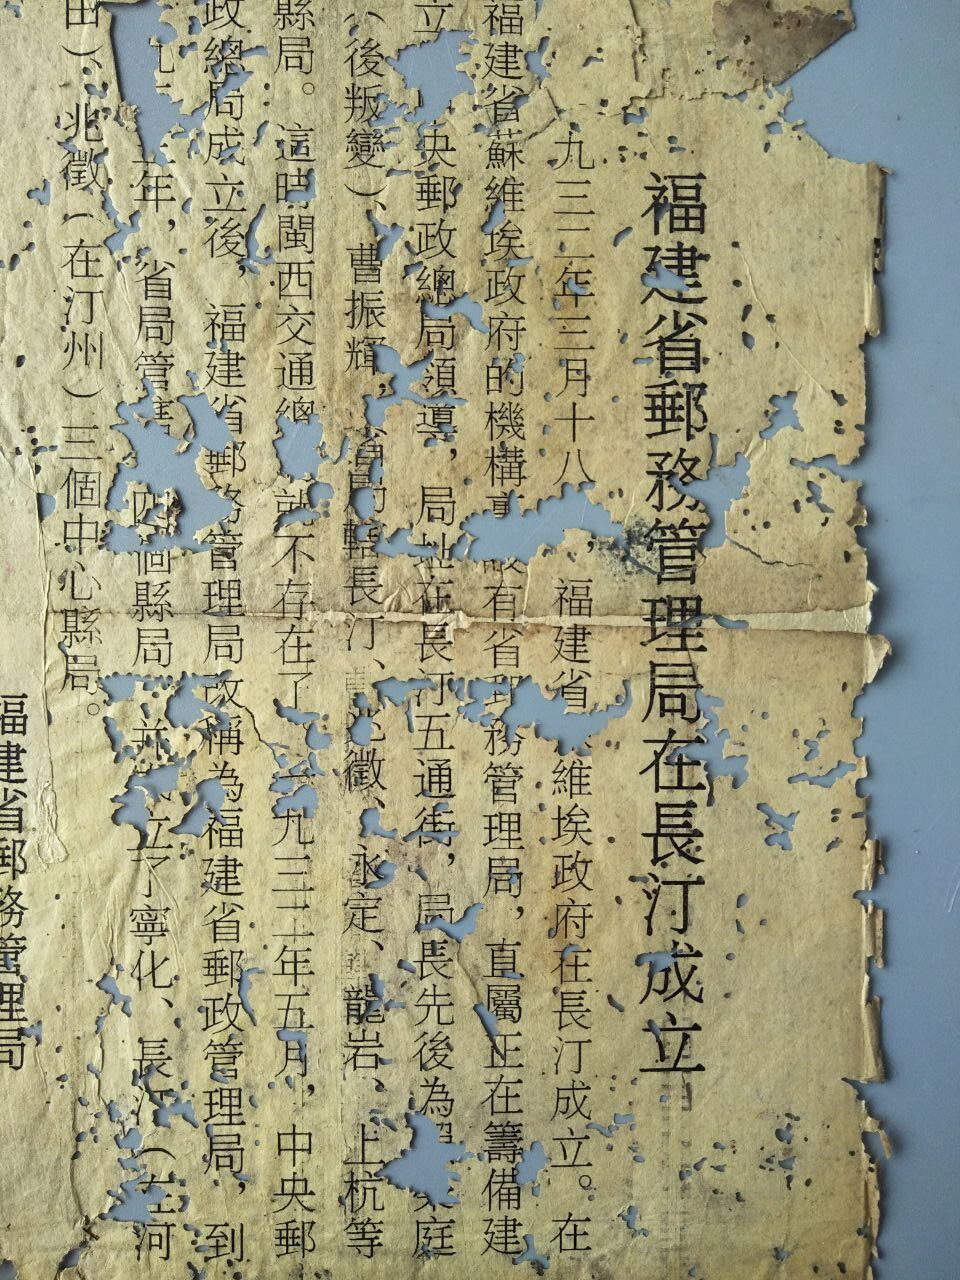 福建省郵務管理局在長汀成立
九三二年三月十八，福建省維埃政府在長汀成立。在
福建省蘇維埃政府的機構有省郵務管理局，直屬正在籌備建
立央郵政總局領導，局址在長汀五通街，局長先後為庭
（後叛變）、曹振輝，省局轄長汀、兆徵、永定、龍岩、上杭等
縣局。這時閩西交通總就不存在了一九三二年五月，中央郵
政總局成立後，福建省郵務管理局改稱為福建省郵政管理局，到
年，省局管四個縣局並立了寧化、長汀（在河
田）、兆徵（在汀州）三個中心縣局。
福建省郵務管理局